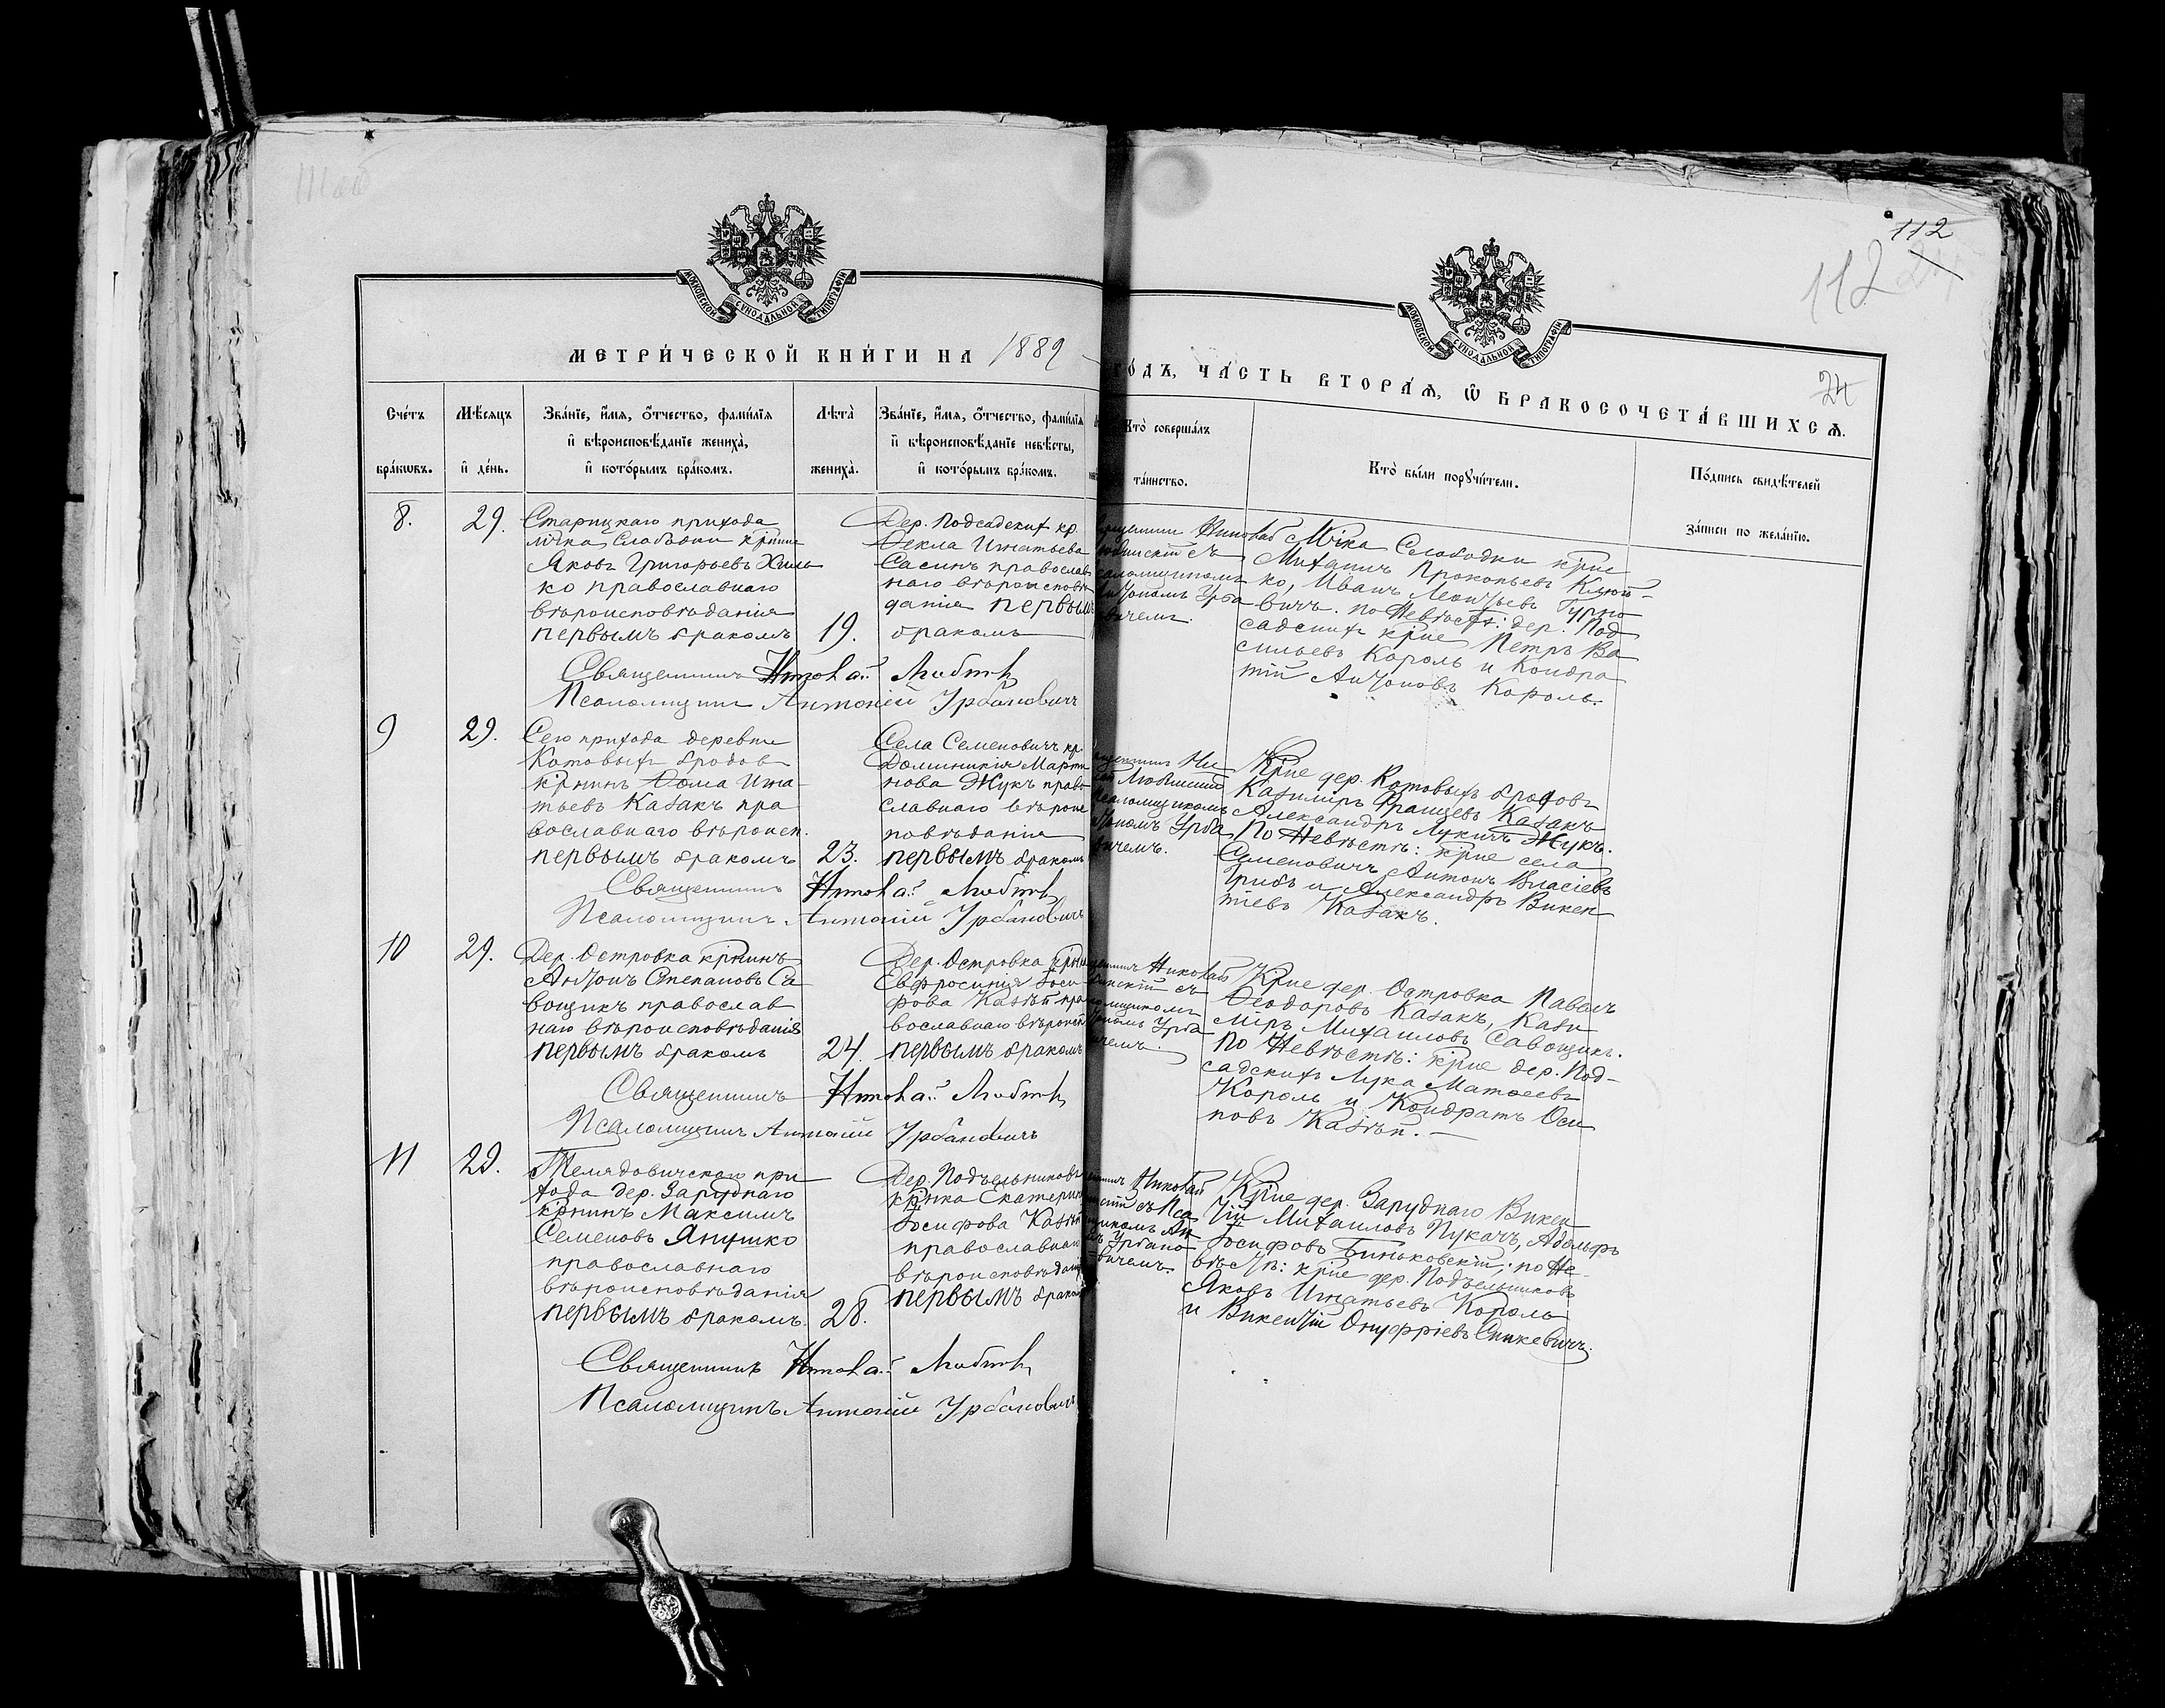 112
112
24
МОСКОВСКОЙ СѴНОДАЛЬНОЙ ТИПОГРАФІИ
МОСКОВСКОЙ СѴНОДАЛЬНОЙ ТИПОГРАФІИ
МЕТРИ́ЧЕСКОЙ КНИ́ГИ НА 1889
ГО́ДЪ, ЧА́СТЬ ВТОРА́Я, Ѽ БРАКОСОЧЕТА́ВШИХСЯ.
Сче́тъ
бра́кѡвъ.
Мѣ́сяцъ
и҆ де́нь.
Зва́нїе, и҆́мя, ѻ҆́тчество, фами́лїя
и҆ вѣроисповѣ́данїе жениха̀,
и҆ кото́рымъ бра́комъ.
Лѣта̀
жениха̀.
Зва́нїе, и҆́мя, ѻ҆́тчество, фами́лїя
и҆ вѣроисповѣ́данїе невѣ́сты,
и҆ кото́рымъ бра́комъ.
Кто̀ соверша́лъ
та́инство.
Кто̀ бы́ли порꙋчи́тели.
По́дпись свидѣ́телей
за́писи по жела́нїю.
8.
29.
Старицкаго прихода
мѣчка Слободки крнинъ
Яковъ Григорьевъ Хиль
ко православнаго
вѣроисповѣданія
первымъ бракомъ
19.
Дер. Подсадскихъ кр.
Ѳекла Игнатьева
Сасинъ православ
наго вѣроисповѣ
данія первымъ
бракомъ
Николай
съ
Урба
вичемъ.
Мѣчка Слободки крне
Михаилъ Прокопьевъ
ко, Иванъ Леонтьевъ
вичъ. по Невѣстѣ: дер. Под
садскихъ крне Петръ Ва
сильевъ Король и Кондра
тій Антоновъ Король.
Священникъ Николай
Псаломщикъ Антоній Урбановичъ
9
29.
Сего прихода деревни
Котовыхъ бродовъ
крнинъ Ѳома Игна
тьевъ Казакъ пра
вославнаго вѣроисп.
первымъ бракомъ
23.
Села Семеновичъ кр.
Доминикія Марти
нова Жукъ право
славнаго вѣроис
повѣданія
первымъ бракомъ
Ни
Урба
вичемъ.
Крне дер. Котовыхъ бродовъ
Казиміръ Францевъ Казакъ
Александръ Лукичъ Жукъ.
По Невѣстѣ: крне села
Семеновичъ Антонъ Власіевъ
Грибъ и Александръ Викен
тіевъ Казакъ.
Священникъ Николай
Псаломщикъ Антоній Урбановичъ
10
29.
Дер. Островка крнинъ
Антонъ Степановъ Са
вощикъ православ
наго вѣроисповѣданія
первымъ бракомъ
24.
Дер. Островка крнка
Евфросинія Іоси
фова Казѣй пра
вославнаго вѣроисп
первымъ бракомъ
Николай
съ
Урба
вичемъ.
Крне дер. Островка Павелъ
Ѳеодоровъ Казакъ, Кази
міръ Михаиловъ Савощикъ.
По Невѣстѣ: крне дер. Под-
садскихъ Лука Матѳеевъ
Король и Кондратъ Оси
повъ Казѣй.
Священникъ Николай
Псаломщикъ Антоній Урбановичъ
11
29.
Телядовичскаго при
хода дер. Заруднаго
крнинъ Максимъ
Семеновъ Янушко
православнаго
вѣроисповѣданія
первымъ бракомъ.
28.
Дер. Подъельниковъ
крнка Екатерина
Іосифова Казѣй
православнаго
вѣроисповѣданія
первымъ бракомъ
Николай
съ Пса
Ан
Урбано
вичемъ.
Крне дер. Заруднаго Викен
тій Михаиловъ Пукачъ, Адольфъ
Іосифовъ Биньковскій; по Не-
вѣстѣ: крне дер. Подъельниковъ
Яковъ Игнатьевъ Король
и Викентій Онуфріевъ Синкевичъ.
Священникъ Николай
Псаломщикъ Антоній Урбановичъ